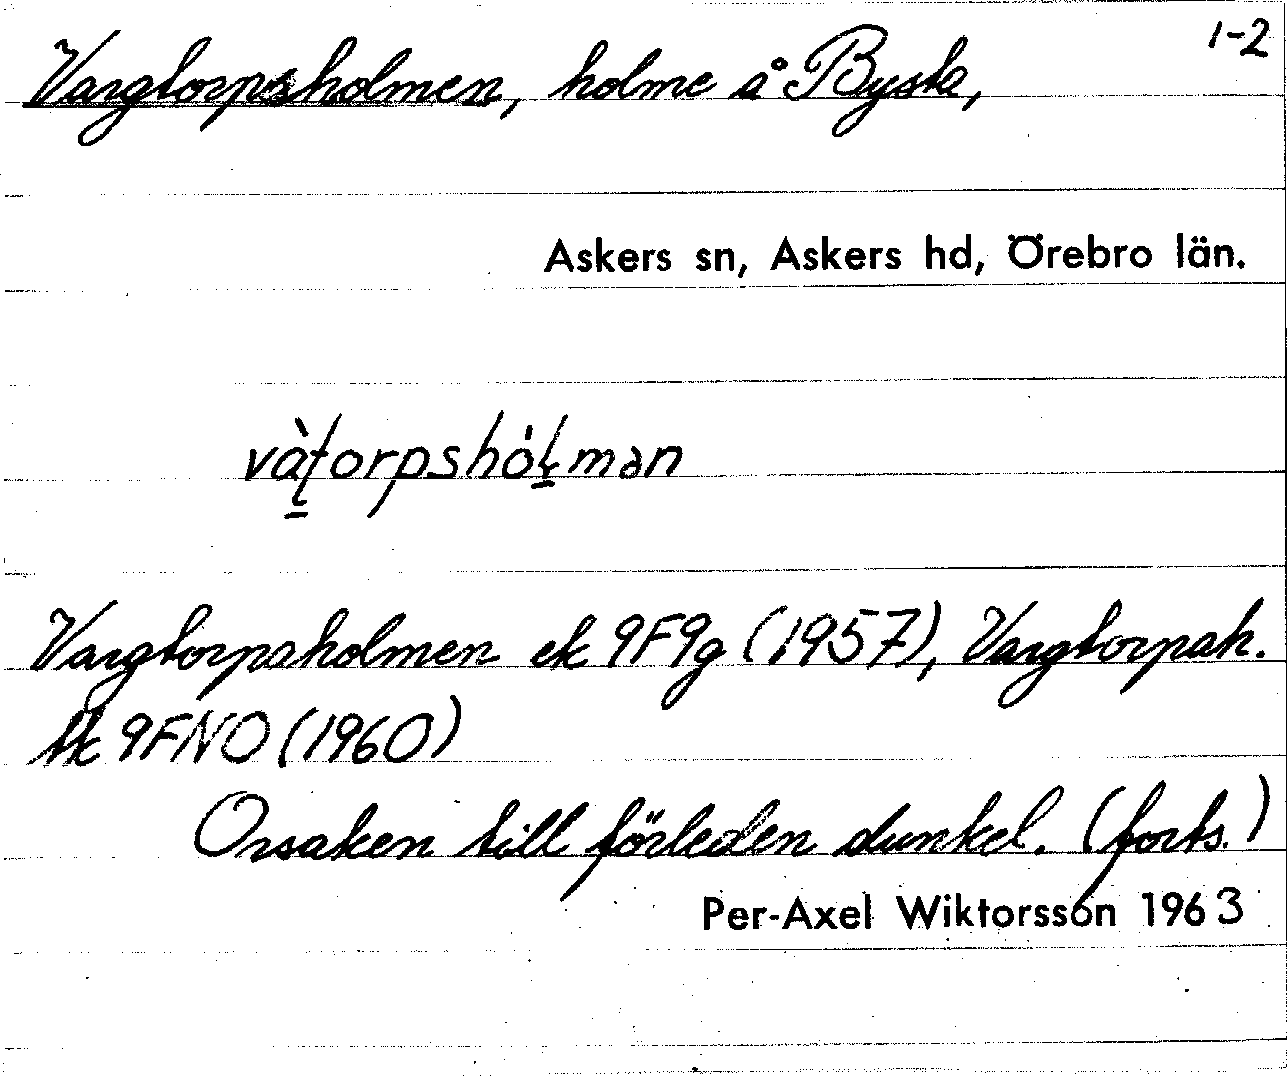 1-2
Vargtorpsholmen, holme å Bysta,
Askers sn, Askers hd, Örebro län.
Vargtorpsholmen ek 9F9g (1957), Vargtorpsh.
tk 9FNO (1960)
Orsaken till förleden dunkel. (forts.)
Per-Axel Wiktorsson 1963